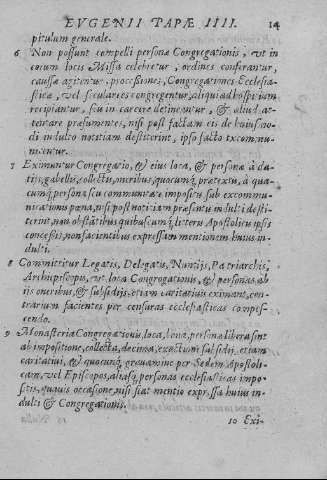 EVGENII PAPÆ IIII. 14
pitulum generale.
6 Non possunt compelli personæ Congregationis, vt in
eorum locis Missa celebretur, ordines conferantur,
causæ agitentur, processiones, Congregationes Ecclesia-
sticæ, vel sæculares congregentur, aliqui ad hospitium
recipiantur, seu in carcere detineantur, & aliud at-
tentare præsumentes, nisi post factam eis de huiusmo-
di indulto notitiam destiterint, ipso facto excommu-
nicentur.
7 Eximuntur Congregatio, & eius loca, & personæ à da-
tijs, gabellis, collectis, meribus, quocumq; prætextu, à qua-
cumq; persona seu communitate impositis sub excommu-
nicationis pœna, nisi post notitiam præsentis indulti desti-
terint, non obstātibus quibuscumq; literis Apostolicis ipsis
concessis, non facientibus expressam mentionem huius in-
dulti.
8 Committitur Legatis, Delegatis, Nuntijs, Patriarchis,
Archiepiscopis, vt loca Congregationis, & personas, ab
ijs oneribus, & subsidijs, etiam caritatiuis eximant, con-
trarium facientes per censuras ecclesiasticas compes-
cendo.
9 Monasteria Congregationis, loca, bona, personæ libera sint
ab impositione, collecta, decima, exactium subsidij, etiam
caritatiui, & quocumq; grauamine per Sedem Apostoli-
cam, vel Episcopos, aliasq; personas ecclesiasticas impo-
sitis, quauis occasione, nisi fiat mentio expressa huius in-
dulti & Congregationis.
10 Exi-